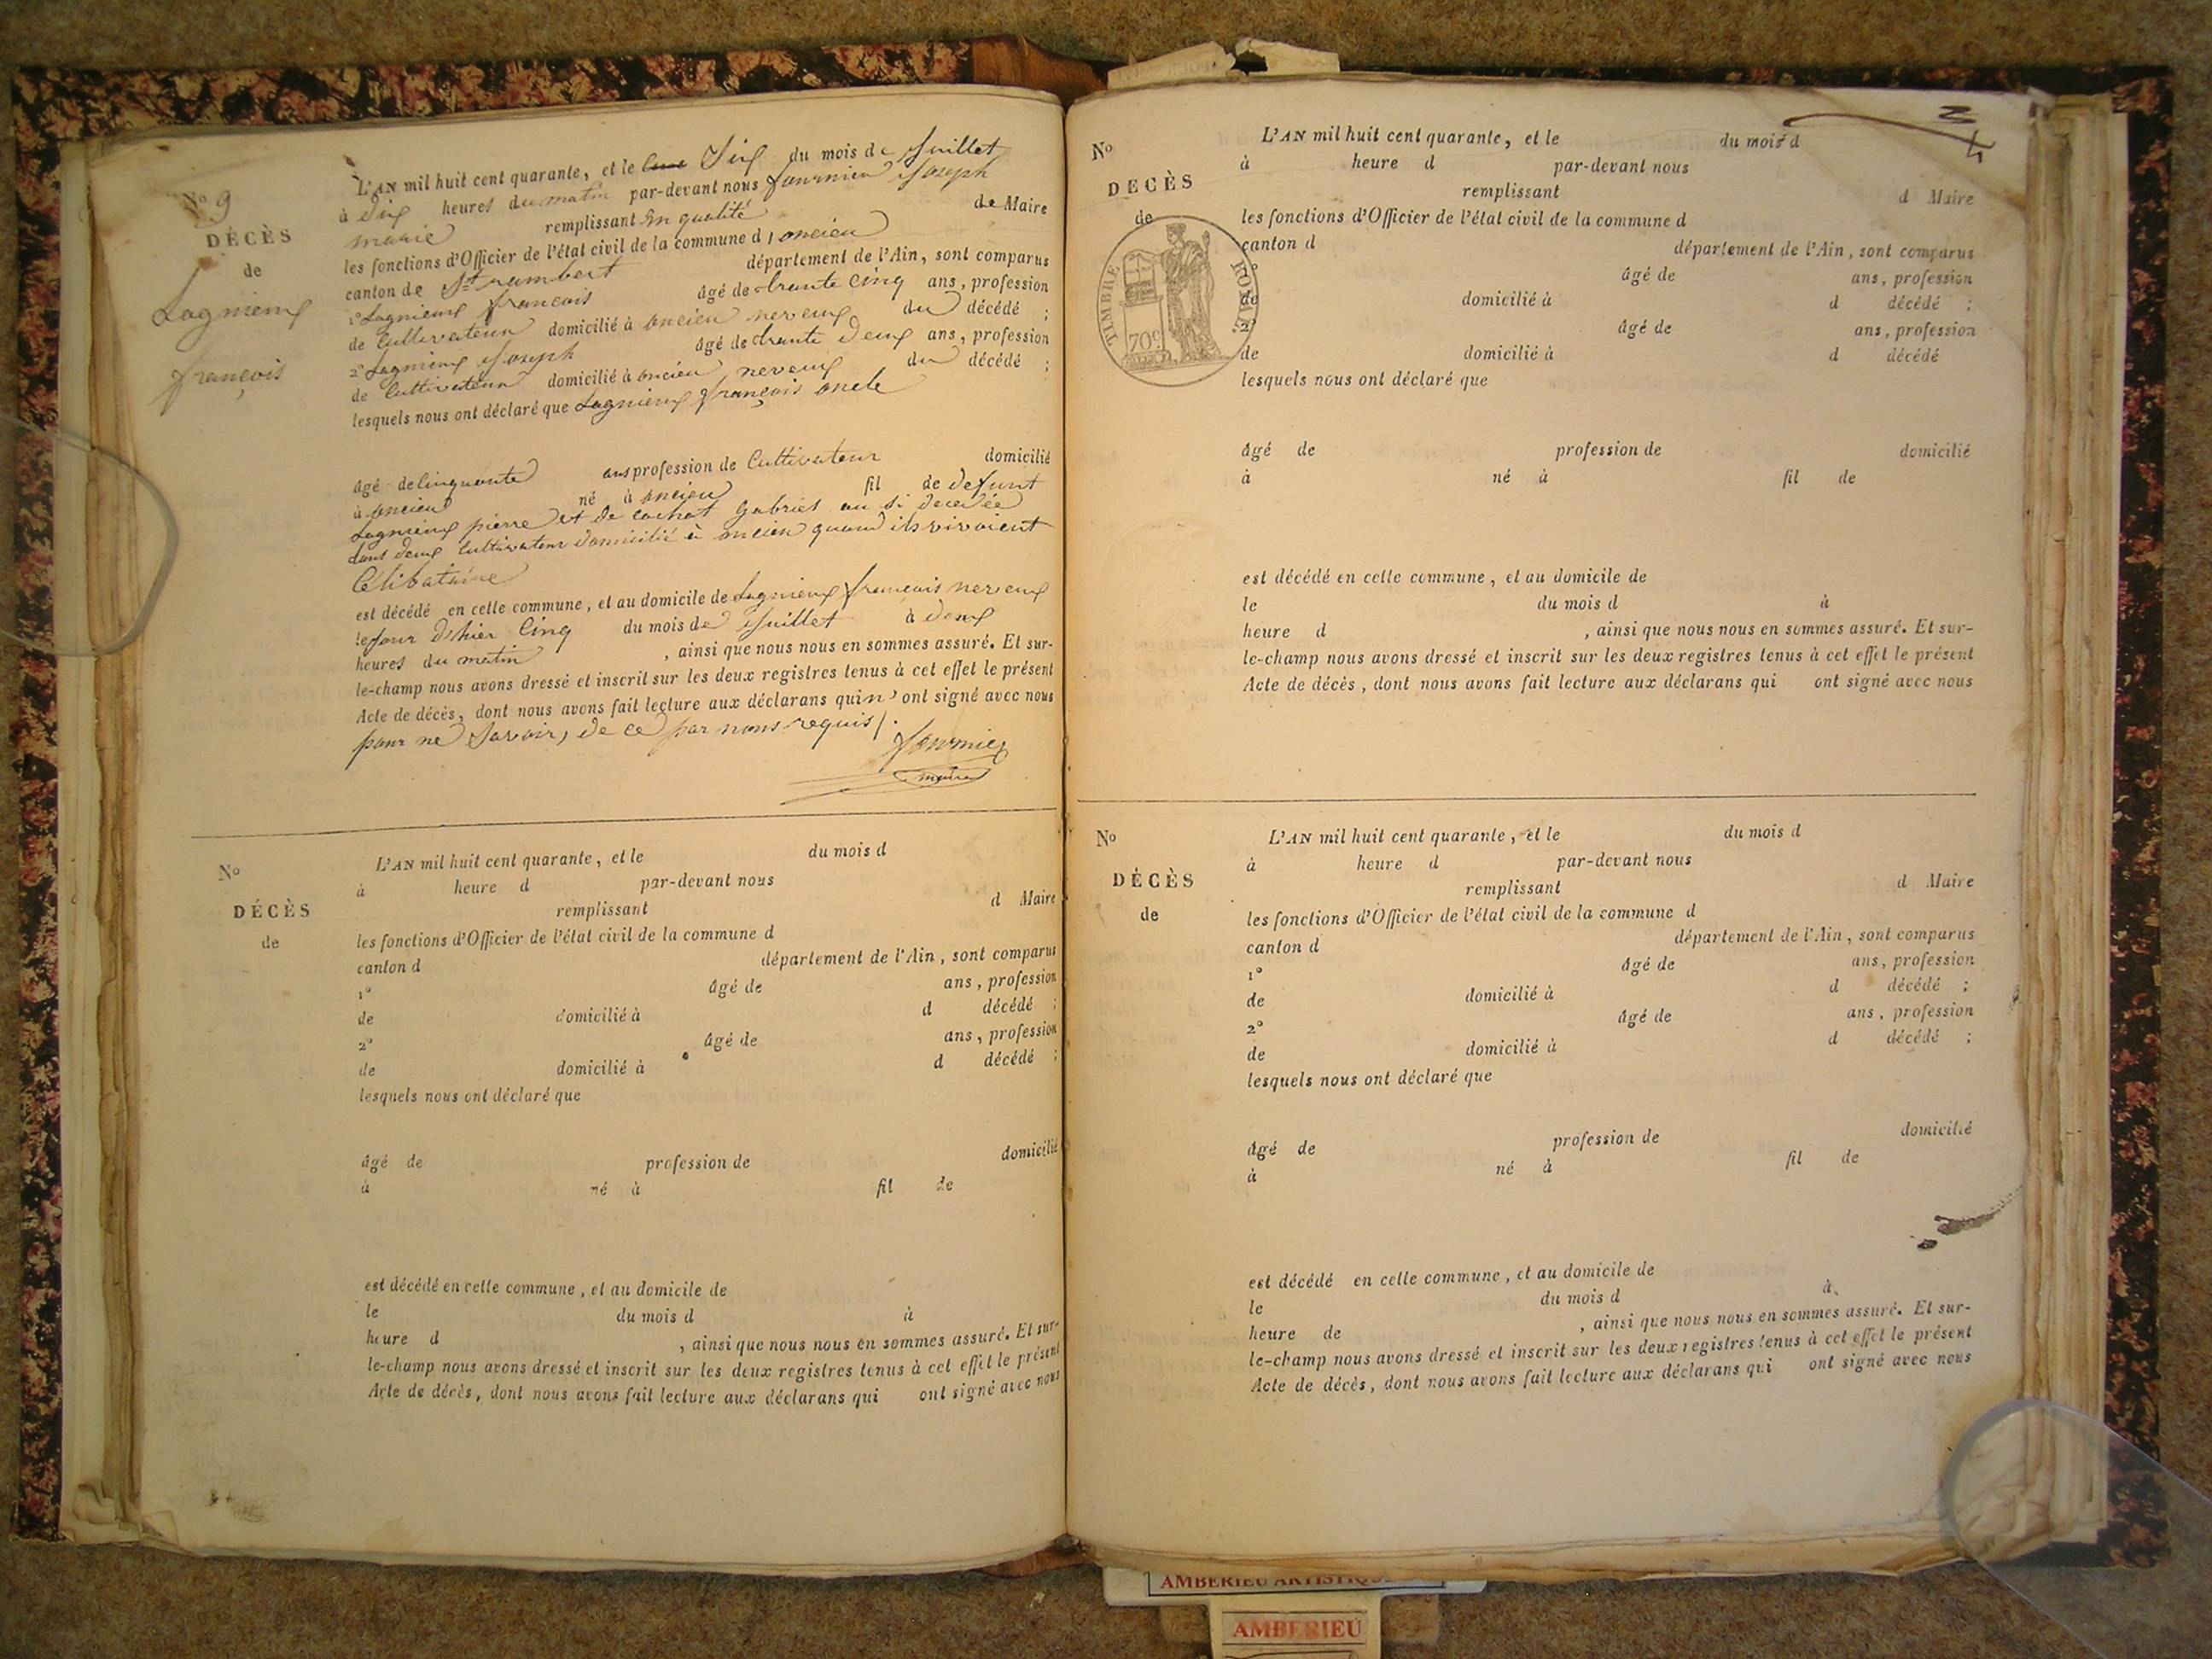 No 9
DÉCÈS
de
Lagnieux
françois
L'AN mil huit cent quarante, et le Six du mois de Juillet
à dix heures du matin par-devant nous fournier Joseph
marie remplissant en qualité de Maire
les fonctions d'Officier de l'état civil de la commune d'oncieu
canton de St rambert département de l'Ain, sont comparus
1° Lagnieux francois âgé de trante cinq ans, profession
de Cultivateur domicilié à oncieu neveux du décédé ;
2° Lagnieux Joseph âgé de trante deux ans, profession
de Cultivateur domicilié à oncieu neveux du décédé ;
lesquels nous ont déclaré que Lagnieux françois oncle
âgé de Cinquante ans profession de Cultivateur domicilié
à oncieu né à oncieu fil de defunt
Lagnieux pierre et de cochat Gabriel au si decedée
tous deux Cultivateur domicilié à oncieu quand ils vivoient
Célibataire
est décédé en celle commune, et au domicile de Lagnieux francois neveux
le jour d'hier Cinq du mois de Juillet à deux
heures du matin , ainsi que nous nous en sommes assuré. Et sur-
le-champ nous avons dressé et inscrit sur les deux registres tenus à cet effet le présent
Acte de décès, dont nous avons fait lecture aux déclarans qui n'ont signé avec nous
pour ne Savoir, de ce par nous requis /.
fournier
maire
No
DÉCÈS
de
L'AN mil huit cent quarante, et le du mois d
à heure d par-devant nous
remplissant d Maire
les fonctions d'Officier de l'état civil de la commune d
canton d département de l'Ain, sont comparus
1° âgé de ans, profession
de domicilié à d décédé ;
2° âgé de ans, profession
de domicilié à d décédé ;
lesquels nous ont déclaré que
âgé de profession de domicilié
à né à fil de
est décédé en celle commune, et au domicile de
le du mois d à
heure d , ainsi que nous nous en sommes assuré. Et sur-
le-champ nous avons dressé et inscrit sur les deux registres tenus à cet effet le présent
Acte de décès, dont nous avons fait lecture aux déclarans qui ont signé avec nous
No
DECÈS
de
TIMBRE ROYAL
70c
L'AN mil huit cent quarante, et le du mois d
à heure d par-devant nous
remplissant d Maire
les fonctions d'Officier de l'état civil de la commune d
canton d département de l'Ain, sont comparus
âgé de ans, profession
de domicilié à d décédé ;
2° âgé de ans, profession
de domicilié à d décédé
lesquels nous ont déclaré que
âgé de profession de domicilié
à né à fil de
est décédé en celle commune, et au domicile de
le du mois d à
heure d , ainsi que nous nous en sommes assuré. Et sur-
le-champ nous avons dressé et inscrit sur les deux registres tenus à cet effet le présent
Acte de décès, dont nous avons fait lecture aux déclarans qui ont signé avec nous
No
DÉCÈS
de
L'AN mil huit cent quarante, et le du mois d
à heure d par-devant nous
remplissant d Maire
les fonctions d'Officier de l'état civil de la commune d
canton d département de l'Ain, sont comparus
1° âgé de ans, profession
de domicilié à d décédé ;
2° âgé de ans, profession
de domicilié à d décédé ;
lesquels nous ont déclaré que
âgé de profession de domicilié
à né à fil de
est décédé en celle commune, et au domicile de
le du mois d à
heure de , ainsi que nous nous en sommes assuré. Et sur-
le-champ nous avons dressé et inscrit sur les deux registres tenus à cet effet le présent
Acte de décès, dont nous avons fait lecture aux déclarans qui ont signé avec nous
AMBERIEU
AMBERIEU